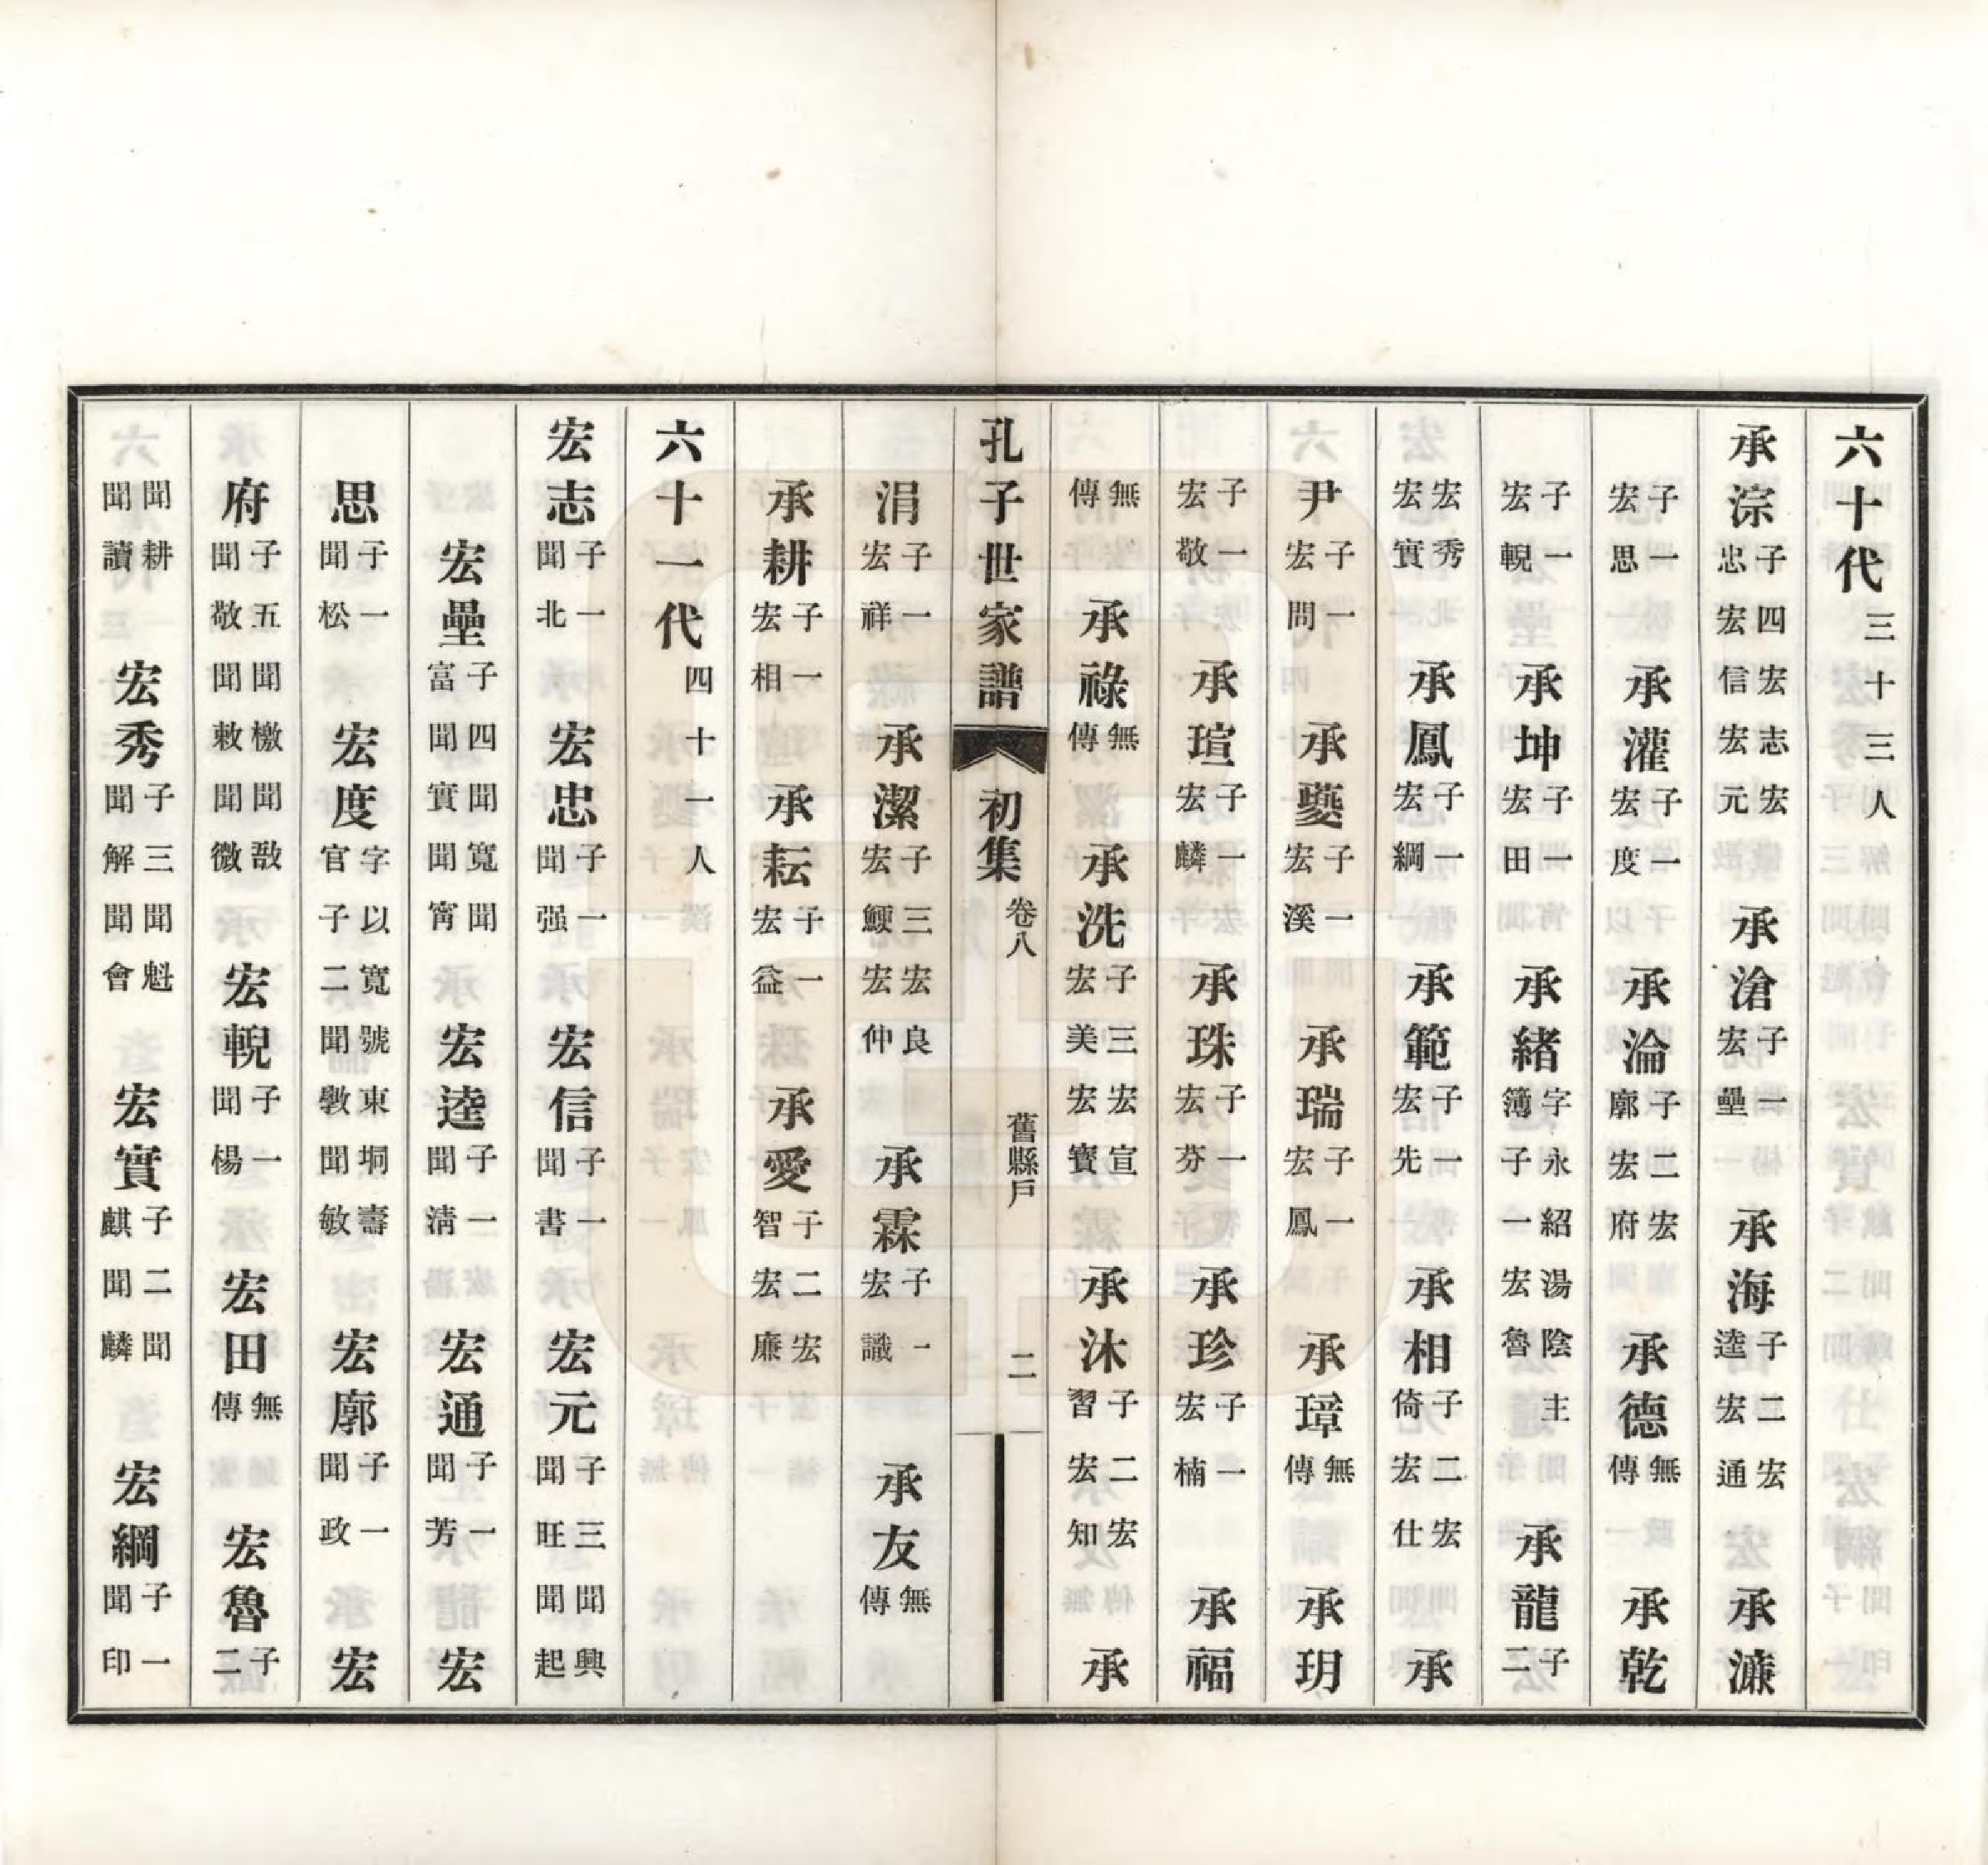 六十代三十三人
承淙子四宏志宏忠宏信宏元 承滄子一宏壘 承海子二宏逵宏通 承濂
子一宏思 承灌子一宏度 承淪子二宏廓宏府 承德無傳 承乾
子一宏輗 承坤子一宏田 承緒字永紹湯陰主簿子一宏魯 承龍子二
宏秀宏實 承鳳子一宏綱 承範子一宏先 承相子二宏倚宏仕 承
尹子一宏問 承藝子一宏溪 承瑞子一宏鳳 承璋無傳 承玥
子一宏敬 承瑄子一宏麟 承珠子一宏芬 承珍子一宏楠 承福
無傳 承祿無傳 承洗子三宏宣宏美宏寶 承沐子二宏習宏知 承
孔子世家譜 初集 卷八 舊縣戶 二
涓子一宏祥 承潔子三宏良宏鯁宏仲 承霖子一宏識 承友無傳
承耕子一宏相 承耘子一宏益 承愛子二宏智宏廉
六十一代四十一人
宏志子一聞北 宏忠子一聞强 宏信子一聞書 宏元子三聞興聞旺聞起
宏壘子四聞寬聞富聞實聞甯 宏逵子一聞清 宏通子一聞芳 宏
思子一聞松 宏度字以寬號東坰壽官子二聞斆聞敏 宏廓子一聞政 宏
府子五聞檄聞敔聞敬聞敕聞微 宏輗子一聞楊 宏田無傳 宏魯子二
聞耕聞讀 宏秀子三聞魁聞解聞會 宏實子二聞麒聞麟 宏綱子一聞印